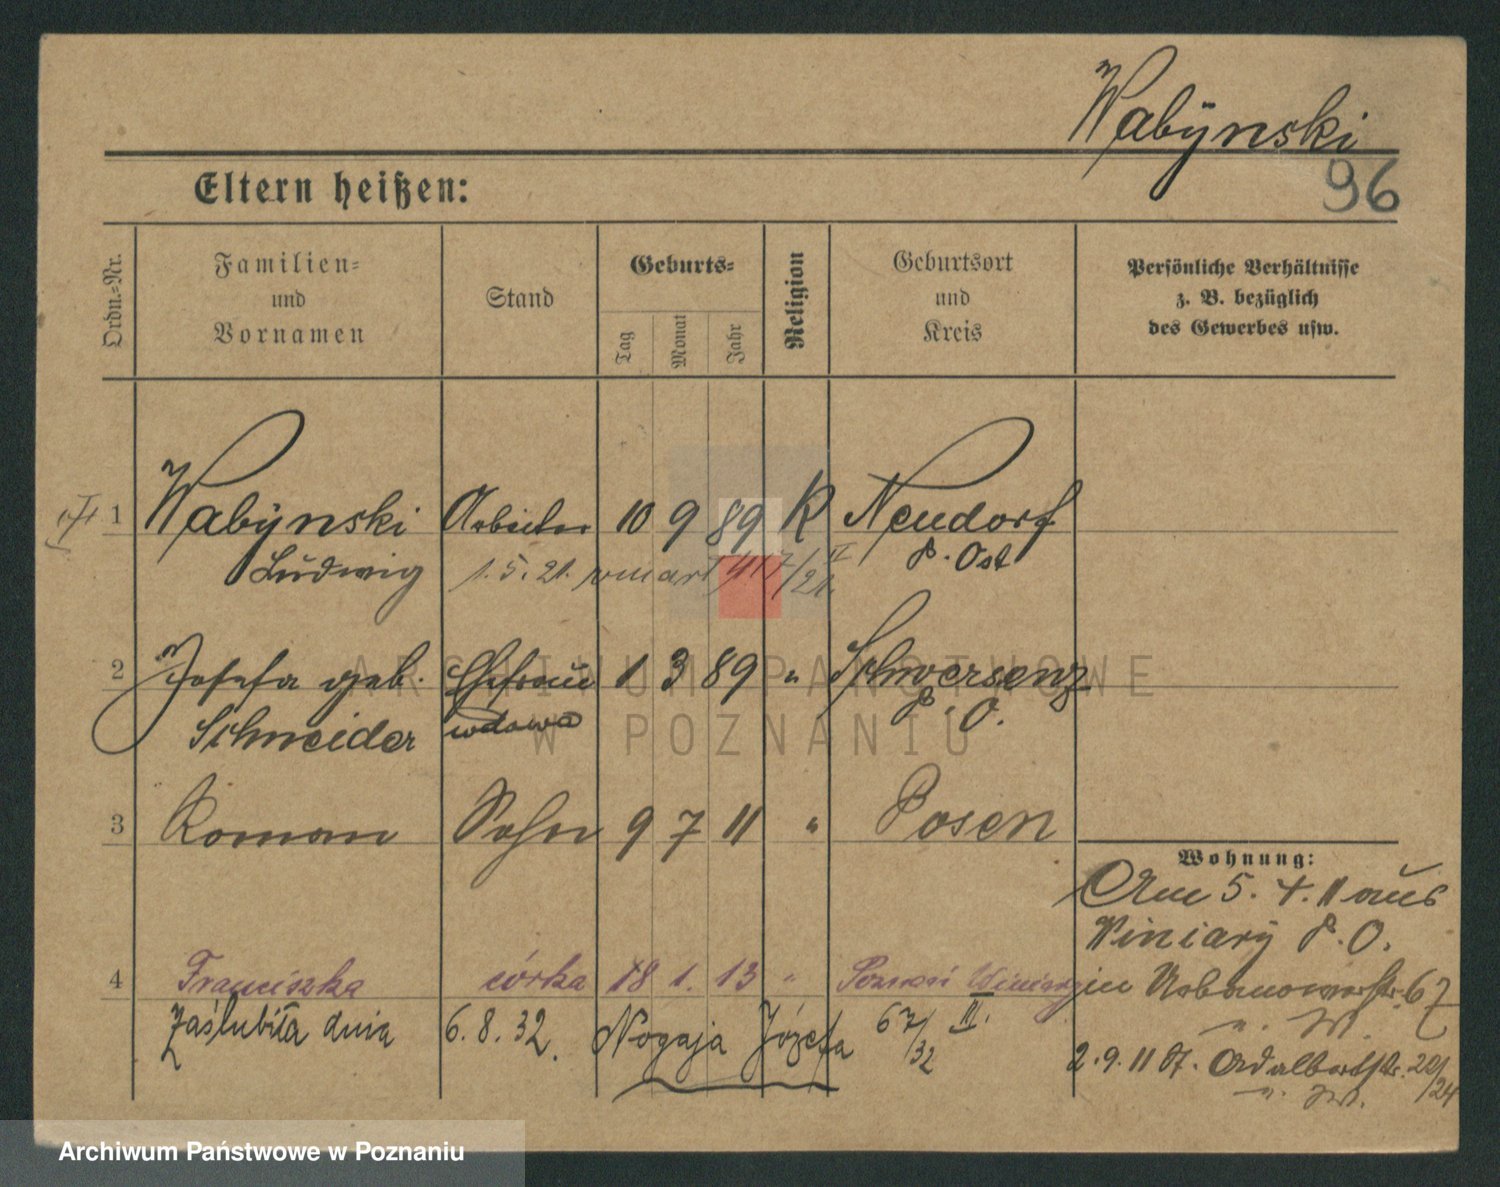 Wabÿnski
96
Eltern heißen:
Ordn.-Nr.
Familien- und Vornamen
Stand
Geburts-
Tag
Monat
Jahr
Religion
Geburtsort und Kreis
Persönliche Verhältnisse z. B. bezüglich des Gewerbes usw.
1 Wabÿnski Arbeiter 10 9 89 K Neudorf
Ludwig 1. 5. 21. umarł 417/21. V P. Ost
2 Josefa geb. Ehefrau 1 3 89 " Schwersenz
Schneider wdowa P. O.
3 Roman Sohn 9 7 11 " Posen
Wohnung:
Am 5. 4. 11 aus
Winiary P. O.
4 Franciszka córka 18 1. 13 " Poznań Winiary
in Urbanowerstr. 67
Zaślubiła dnia 6. 8. 32. Nogaja Józefa 67/32 III.
2. 9. 11 Adalbertstr. 22/24
ARCHIWUM PAŃSTWOWE
W POZNANIU
Archiwum Państwowe w Poznaniu